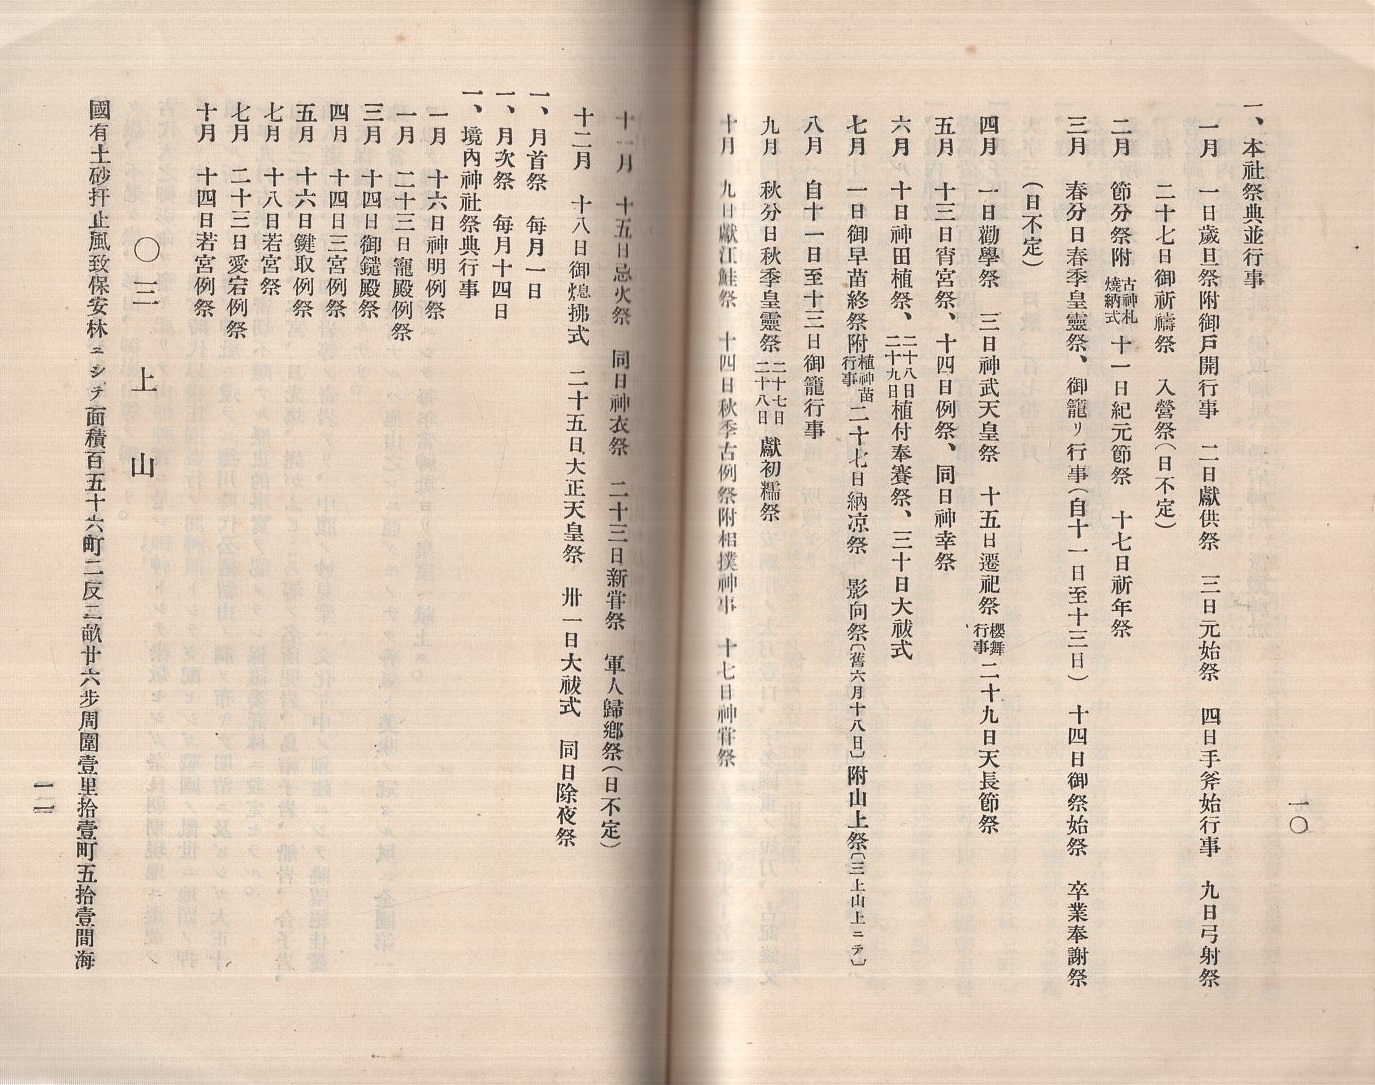 一、本社祭典並行事
一月　一日歲旦祭附御戶開行事　二日獻供祭　三日元始祭　四日手斧始行事　九日弓射祭
二十七日御祈禱祭　入營祭(日不定)
二月　節分祭附 古神札燒納式 十一日紀元節祭　十七日祈年祭
三月　春分日春季皇靈祭、御籠リ行事(自十一日至十三日)　十四日御祭始祭　卒業奉謝祭
(日不定)
四月　一日勸學祭　三日神武天皇祭　十五日遷祀祭 櫻舞行事 二十九日天長節祭
五月　十三日宵宮祭、十四日例祭、同日神幸祭
六月　十日神田植祭、二十八日二十九日植付奉賽祭、三十日大祓式
七月　一日御早苗終祭附 植神苗行事 二十七日納凉祭　影向祭〔舊六月十八日〕附山上祭〔三上山上ニテ〕
八月　自十一日至十三日御籠行事
九月　秋分日秋季皇靈祭 二十七日二十八日 獻初穤祭
十月　九日獻江鮭祭　十四日秋季古例祭附相撲神事　十七日神甞祭
一〇
十一月　十五日忌火祭　同日神衣祭　二十三日新甞祭　軍人歸鄕祭(日不定)
十二月　十八日御煤拂式　二十五日大正天皇祭　卅一日大祓式　同日除夜祭
一、月首祭　每月一日
一、月次祭　每月十四日
一、境內神社祭典行事
一月　十六日神明例祭
一月　二十三日竈殿例祭
三月　十四日御鑓殿祭
四月　十四日三宮例祭
五月　十六日鍵取例祭
七月　十八日若宮祭
七月　二十三日愛宕例祭
十月　十四日若宮例祭
〇三上山
國有土砂扞止風致保安林ニシテ面積百五十六町二反二畝廿六步周圍壹里拾壹町五拾壹間海
一一